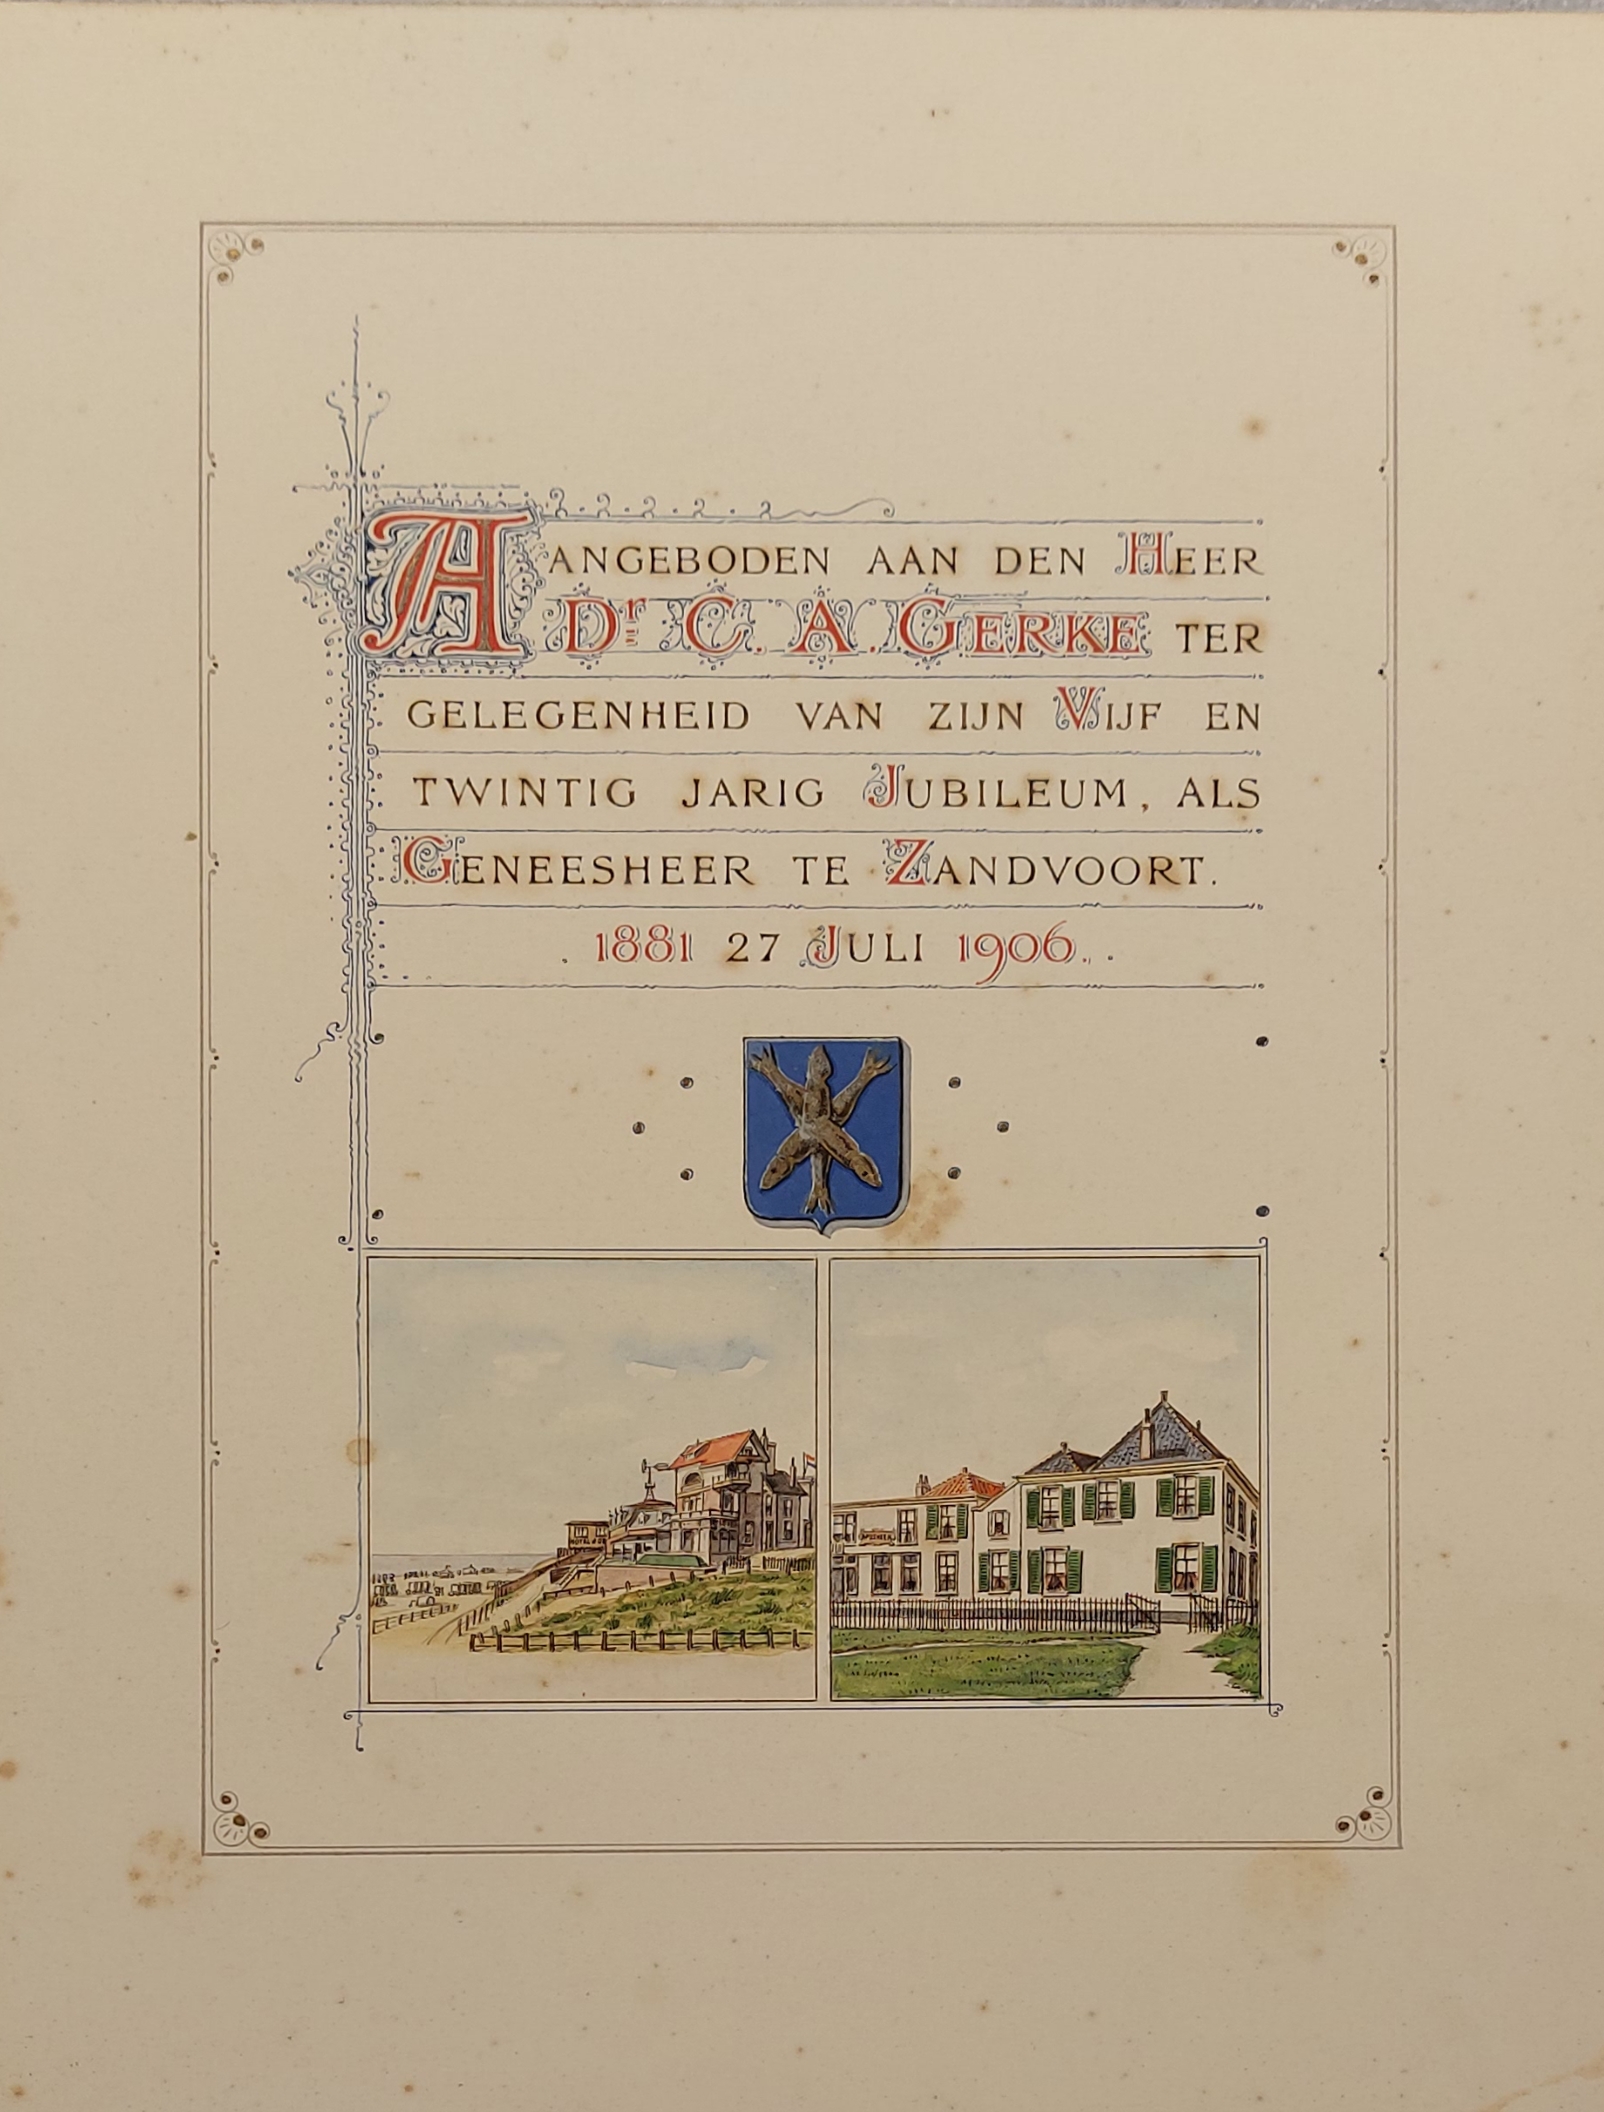 AANGEBODEN AAN DEN HEER
Dr. C. A. GERKE TER
GELEGENHEID VAN ZIJN VIJF EN
TWINTIG JARIG JUBILEUM, ALS
GENEESHEER TE ZANDVOORT.
. 1881 27 JULI 1906. .
HOTEL